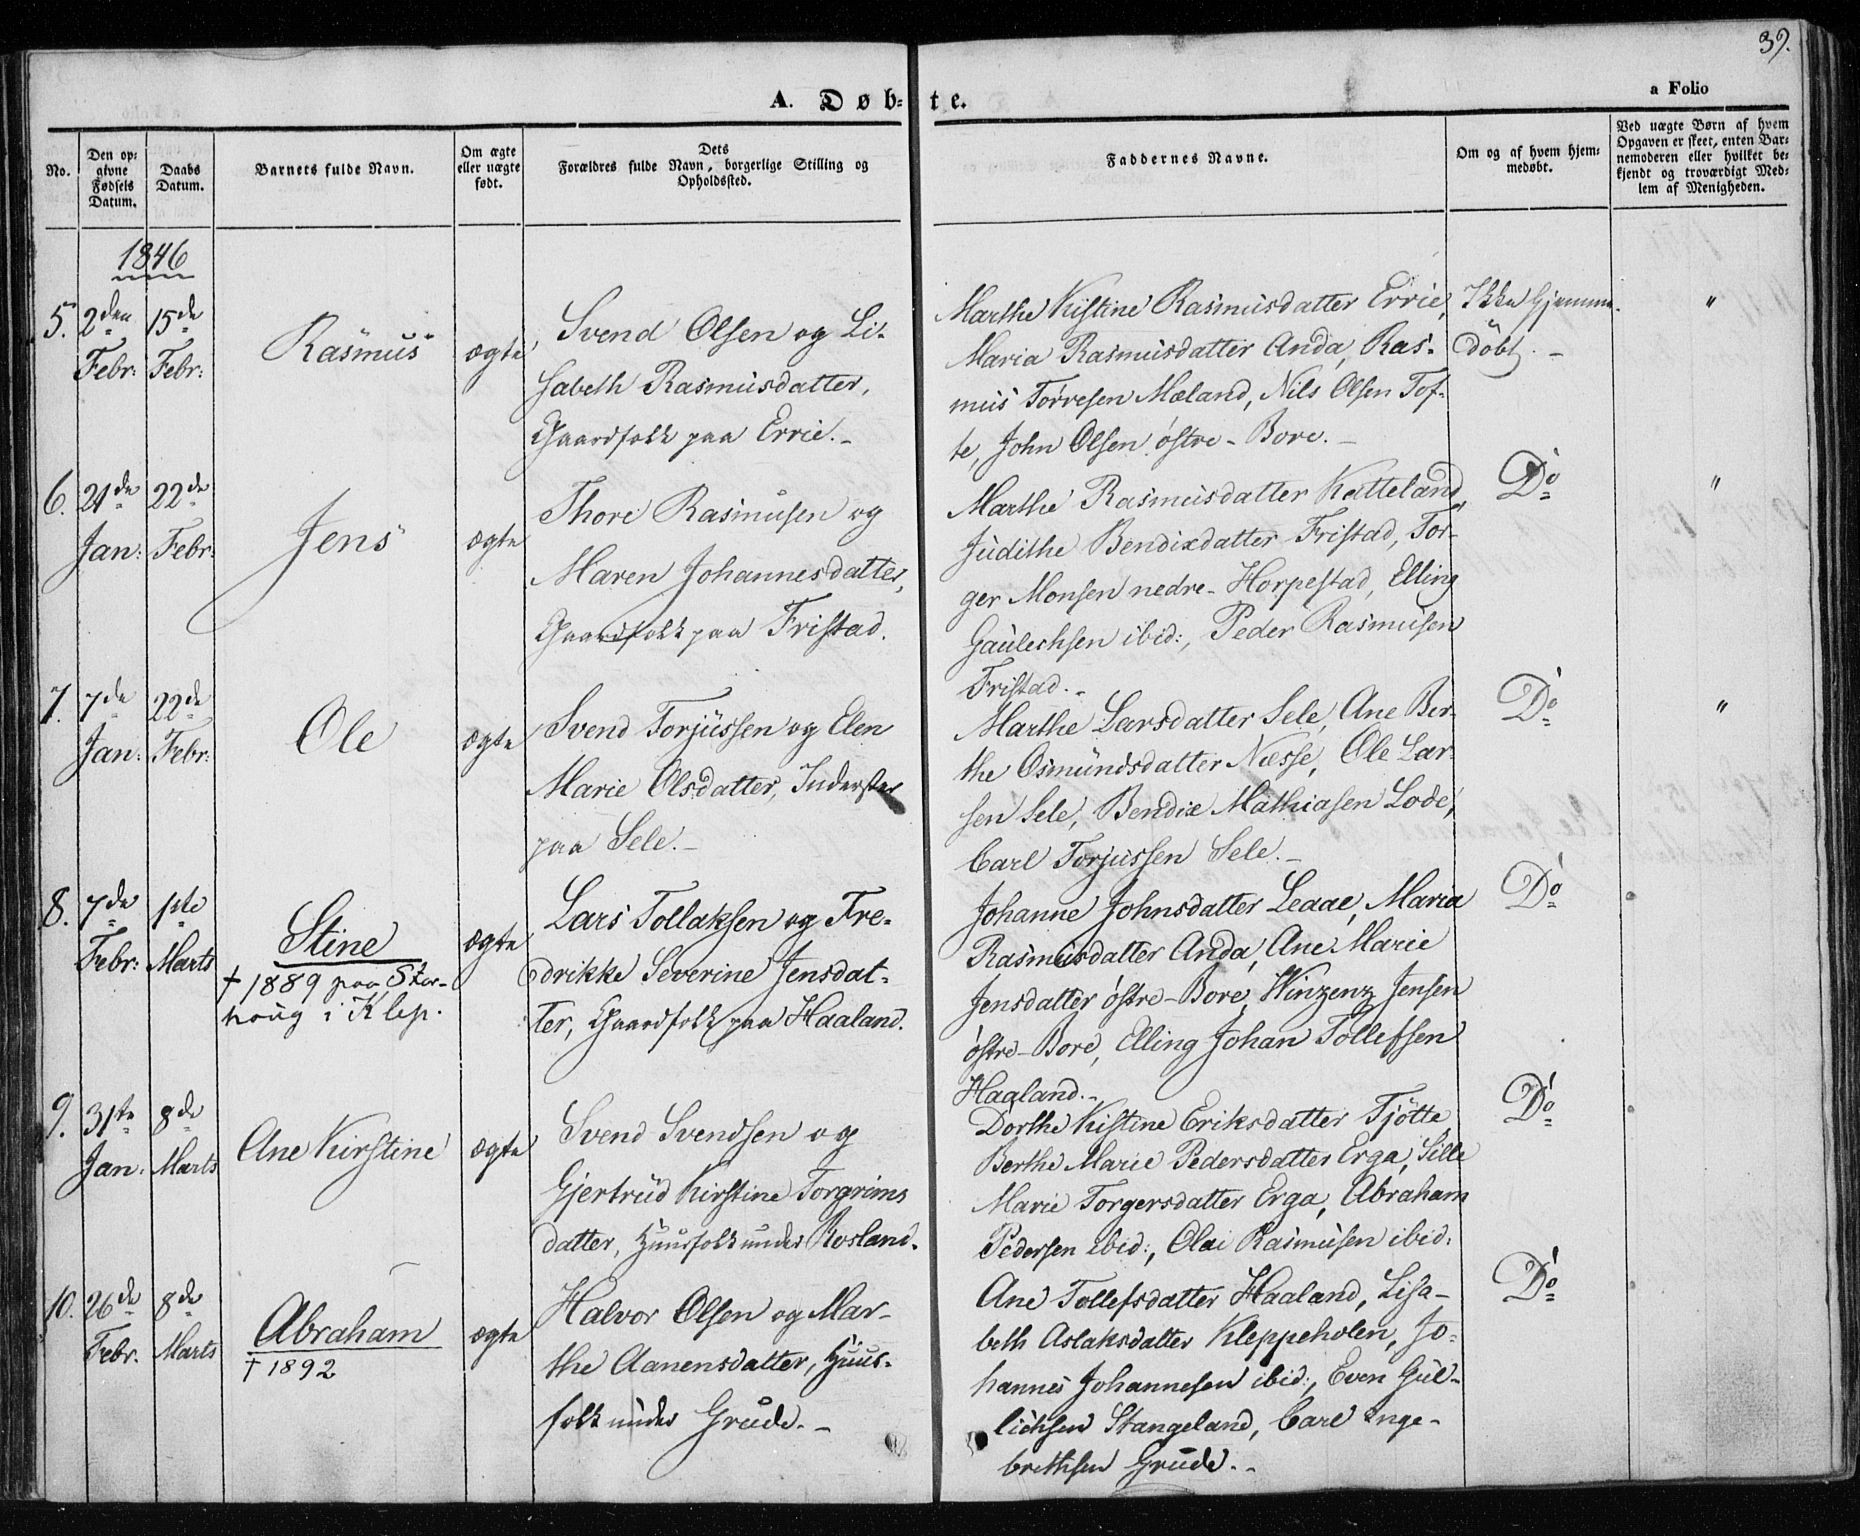 39.
A. Døbte.
a Folio
No.
Den op-
givne
Fødsels
Datum.
Daabs
Datum.
Barnets fulde Navn.
Om ægte
eller uægte
født.
Dets
Forældres fulde Navn, borgerlige Stilling og
Opholdssted.
Faddernes Navne.
Om og af hvem hjem-
medøbt.
Ved uægte Børn af hvem
Opgaven er skeet, enten Bar-
nemoderen eller hvilket be-
kjendt og troværdigt Med-
lem af Menigheden.
1846
5.
2den
Febr:
15de
Febr:
Rasmus
ægte
Svend Olsen og Li-
sabeth Rasmusdatter,
Gaardfolk paa Errie.-
Marthe Kistine Rasmusdatter Errie,
Maria Rasmusdatter Anda, Ras-
mus Torresen Mæland, Nils Olsen Tof-
te, John Olsen østre-Bore.-
Ikke Hjemme-
døbt.-
"
6.
21de
Jan:
22de
Febr:
Jens
ægte
Thore Rasmusen og
Maren Johannesdatter,
Gaardfolk paa Fristad.
Marthe Rasmusdatter Katteland,
Judithe Bendixdatter Fristad, Tor-
ger Monsen nedre-Horpestad, Elling
Gaulechsen ibid:, Peder Rasmusen
Fristad.-
Do
"
7.
7de
Jan:
22de
Febr:
Ole
ægte
Svend Torjussen og Elen
Marie Olsdatter, Inderster
paa Sele.-
Marthe Larsdatter Sele, Ane Ber-
the Osmundsdatter Næsse, Ole Lar-
sen Sele, Bendix Mathiasen Lode,
Carl Torjussen Sele.-
Do
"
8.
7de
Febr:
1ste
Marts
Stine
† 1889 paa Stor-
haug i Klep.
ægte
Lars Tollaksen og Fre-
drikke Severine Jensdat-
ter, Gaardfolk paa Haaland.
Johanne Johnsdatter Leaae, Maria
Rasmusdatter Anda, Ane Marie
Jensdatter østre-Bore, Winzenz Jensen
østre-Bore, Elling Johan Tollefsen
Haaland.-
Do
9.
31te
Jan:
8de
Marts
Ane Kirstine
ægte
Svend Svendsen og
Gjertrud Kirstine Torgrims
datter, Huusfolk under Rosland.
Dorthe Kistine Eriksdatter Tjötte,
Berthe Marie Pedersdatter Erga, Sille
Marie Torgersdatter Erga, Abraham
Pedersen ibid:, Olai Rasmusen ibid:
Do
10.
26de
Febr.
8de
Marts
Abraham
† 1892
ægte
Halvor Olsen og Mar-
the Aanensdatter, Huus-
folk under Grude.-
Ane Tollefsdatter Haaland, Lisa-
beth Aslaksdatter Kleppeholen, Jo-
hannes Johannesen ibid:, Even Gul-
lichsen Stangeland, Carl Inge-
brethsen Grude.-
Do